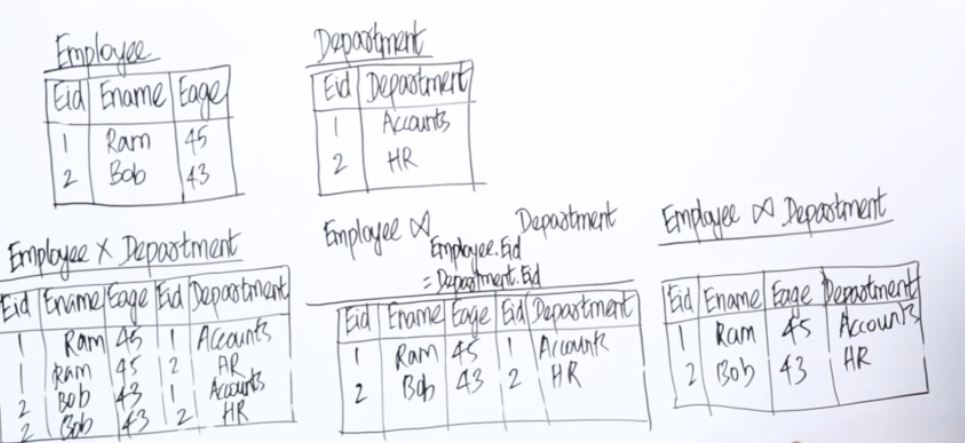 Employee
Eid Ename Eage
1 Ram 45
2 Bob 43
Department
Eid Department
1 Accounts
2 HR
Employee X Department
Eid Ename Eage Eid Department
1 Ram 45 1 Accounts
1 Ram 45 2 HR
2 Bob 43 1 Accounts
2 Bob 43 2 HR
Employee ⋈ Department
Employee.Eid
= Department.Eid
Eid Ename Eage Eid Department
1 Ram 45 1 Accounts
2 Bob 43 2 HR
Employee ⋈ Department
Eid Ename Eage Department
1 Ram 45 Accounts
2 Bob 43 HR